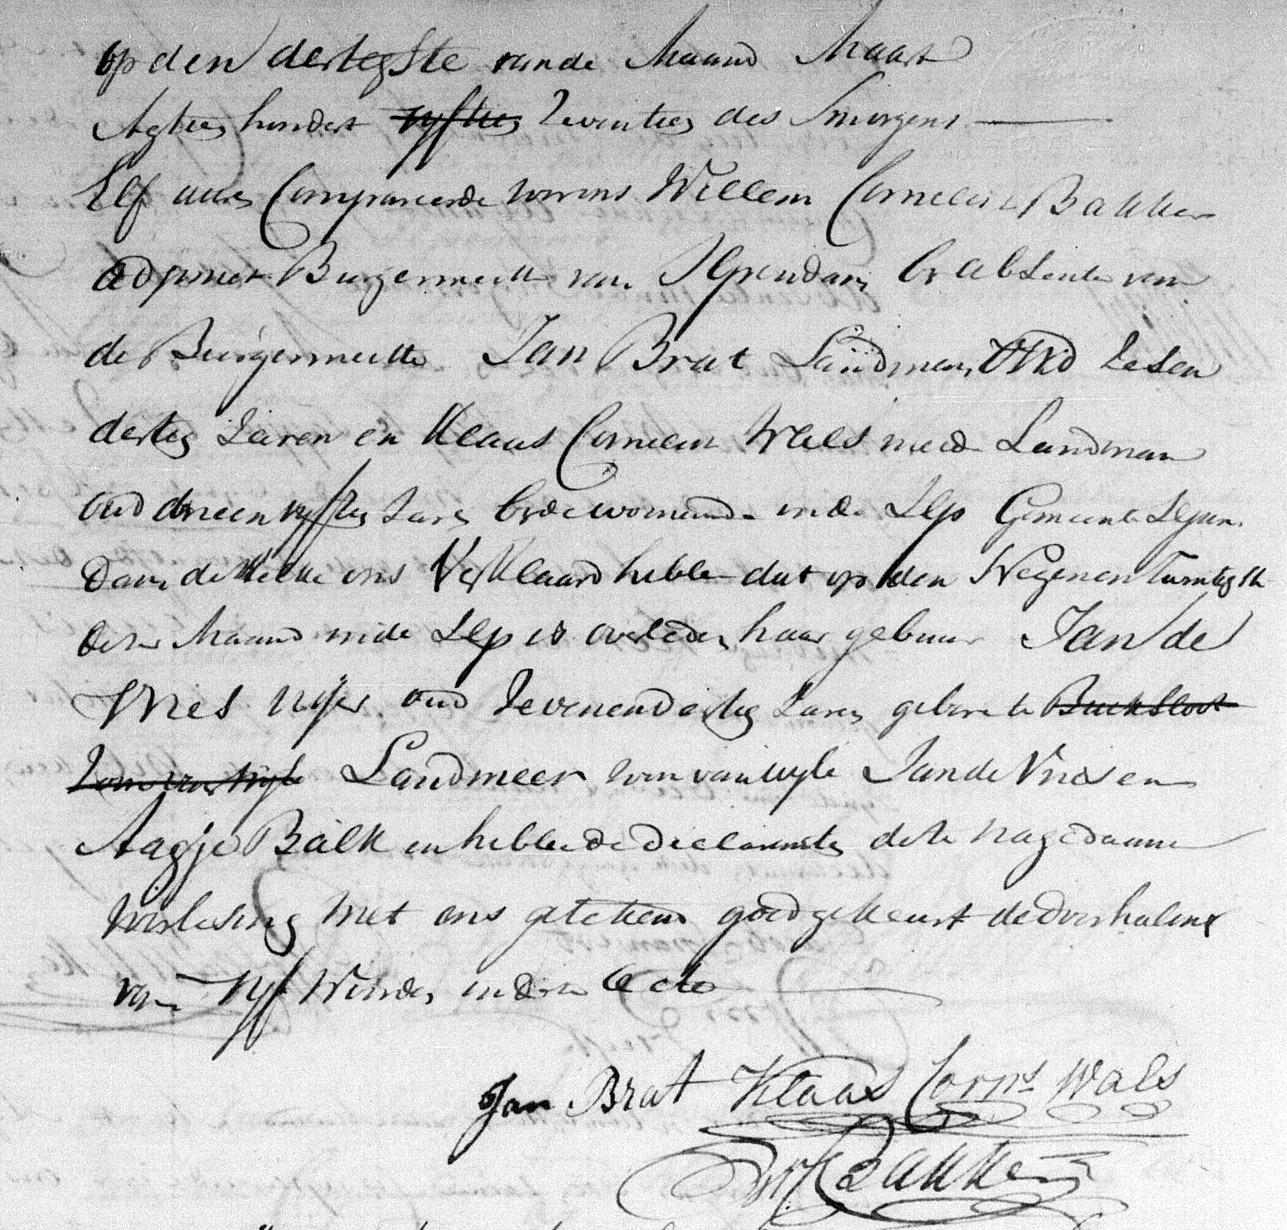 op den dertigste vande Maand Maart
Agtien hondert vyftien Zeventien des Smorgens
Elf uuren Compareerde voor ons Willem Cornelis Bakker
Adjunct Burgermeester van Ilpendam by absentie van
de Burgermeester Jan Brat Landman Oud Zesen
dertig Jaren en Klaas Cornelis Wals meede Landman
oud drieenvyftig Jaren beide woonende inde Ilp Gemeente Ilpen
dam de welke ons Verklaard hebben dat op den Negenentwintigste
deser Maand inde Ilp is overleden haar gebuur Jan de
Vries Vyfer oud Zevenendertig Jaren geboren te Buiksloot
Zoon van Wyle Landmeer zoon van wyle Jan de Vries en
Aagje Balk en hebben de declaranten dese na gedaane
voorlesing met ons geteken goedgekeurt de doorhaling
van Vyf Woorden in dese Acte
Jan Brat Klaas Corns Wals
WCBakker